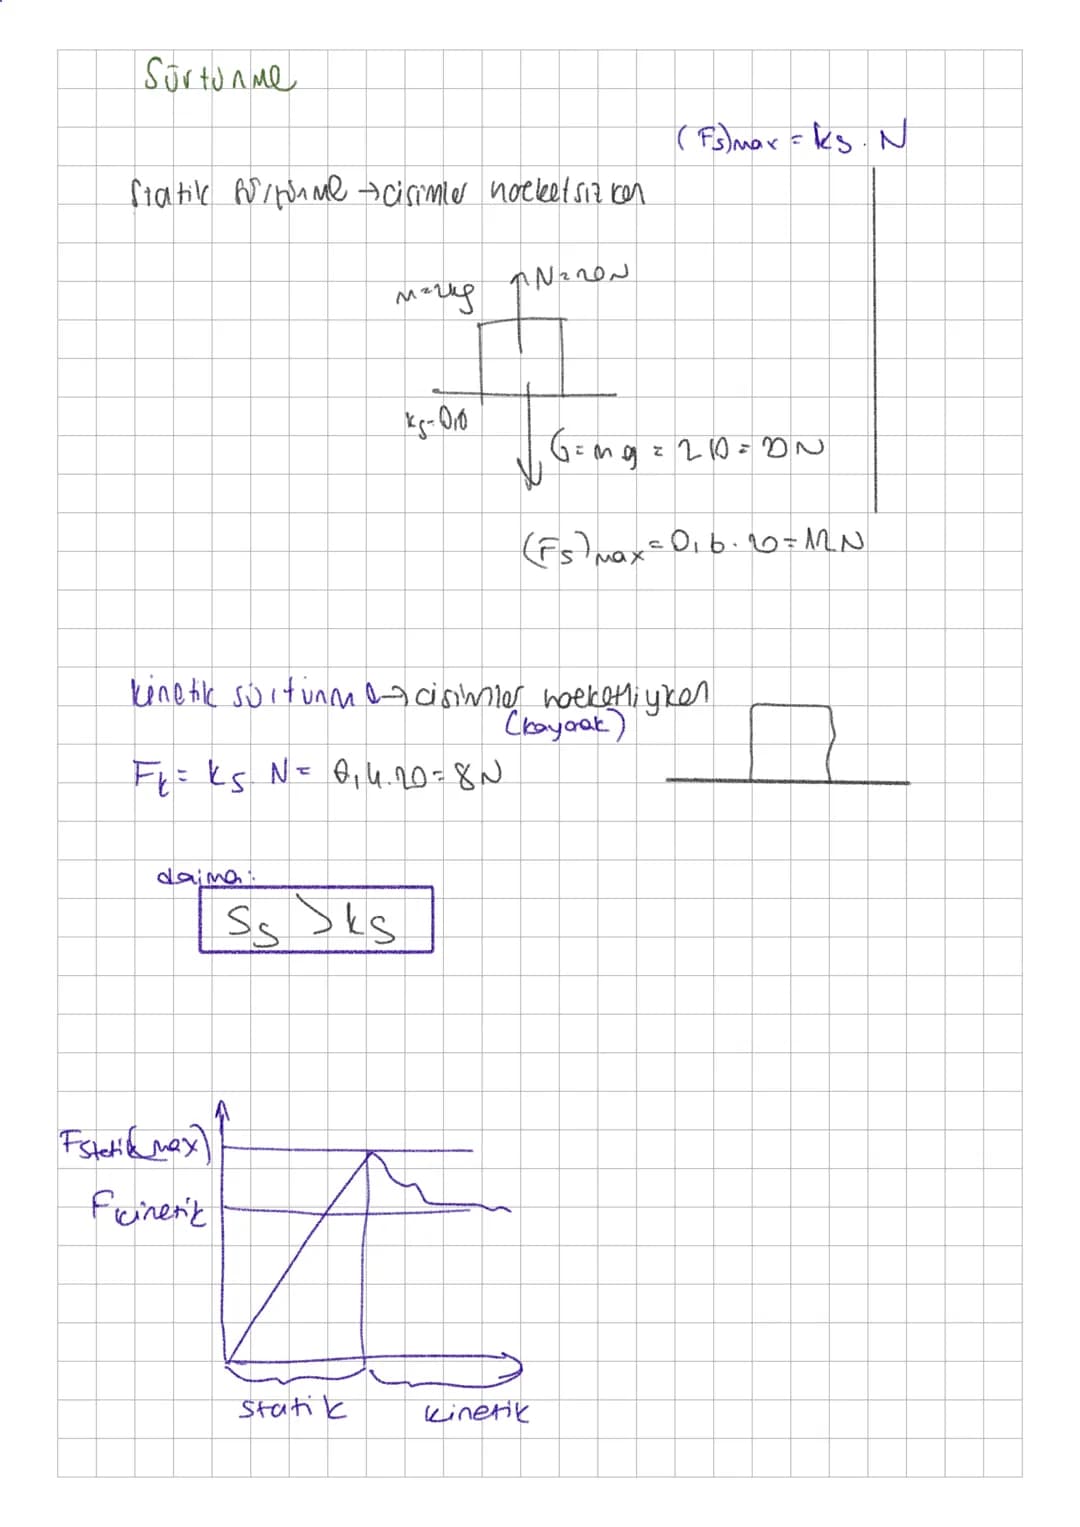 Sürtünme
(Fs)max = ks . N
Statik sürtünme → cisimler hareketsizken
m=2kg
N=20N
ks=0,6
G=mg = 2 10 = 20N
(Fs)max = 0,6 . 20 = 12N
kinetik sürtünme → cisimler hareketliyken
(kayarak)
Fk = ks. N = 0,4.20 = 8N
daima:
Ss > ks
Fstatik(max)
Fkinetik
statik
kinetik